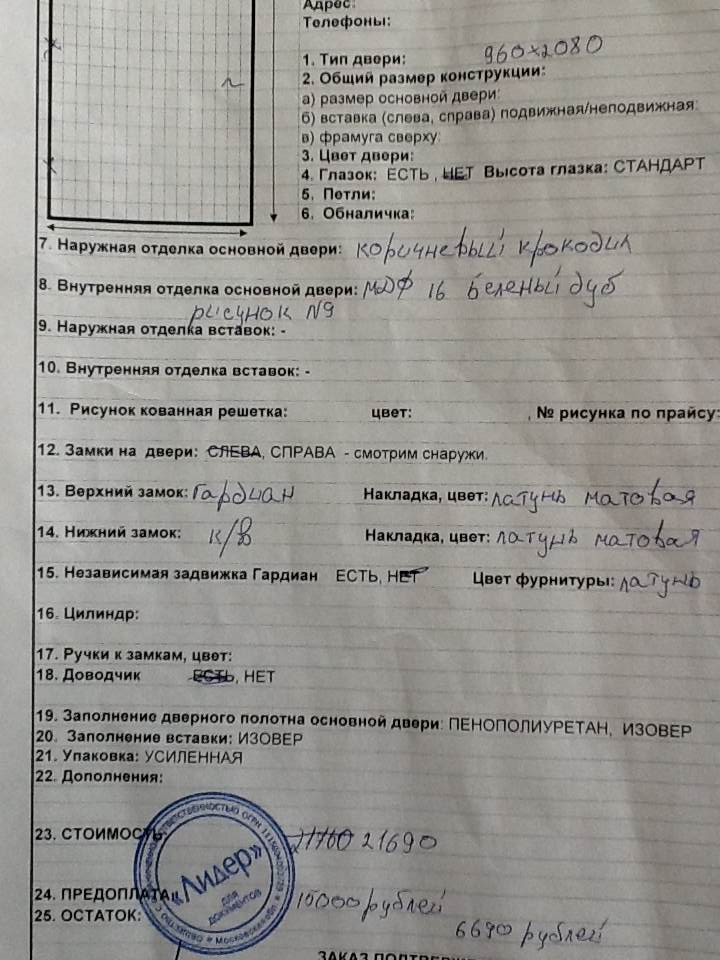 Адрес:
Телефоны:
1. Тип двери: 960x2080
2. Общий размер конструкции:
а) размер основной двери:
б) вставка (слева, справа) подвижная/неподвижная:
в) фрамуга сверху:
3. Цвет двери:
4. Глазок: ЕСТЬ , НЕТ Высота глазка: СТАНДАРТ
5. Петли:
6. Обналичка:
7. Наружная отделка основной двери: коричневый крокодил
8. Внутренняя отделка основной двери: мдф 16 беленый дуб
рисунок №9
9. Наружная отделка вставок: -
10. Внутренняя отделка вставок: -
11. Рисунок кованная решетка: цвет: , № рисунка по прайсу:
12. Замки на двери: СЛЕВА, СПРАВА - смотрим снаружи.
13. Верхний замок: Гардиан Накладка, цвет: латунь матовая
14. Нижний замок: к/в Накладка, цвет: латунь матовая
15. Независимая задвижка Гардиан ЕСТЬ, НЕТ Цвет фурнитуры: латунь
16. Цилиндр:
17. Ручки к замкам, цвет:
18. Доводчик ЕСТЬ, НЕТ
19. Заполнение дверного полотна основной двери: ПЕНОПОЛИУРЕТАН, ИЗОВЕР
20. Заполнение вставки: ИЗОВЕР
21. Упаковка: УСИЛЕННАЯ
22. Дополнения:
23. СТОИМОСТЬ: 21690
24. ПРЕДОПЛАТА 15000 рублей
25. ОСТАТОК: 6690 рублей
«Лидер»
для
документов
Московская